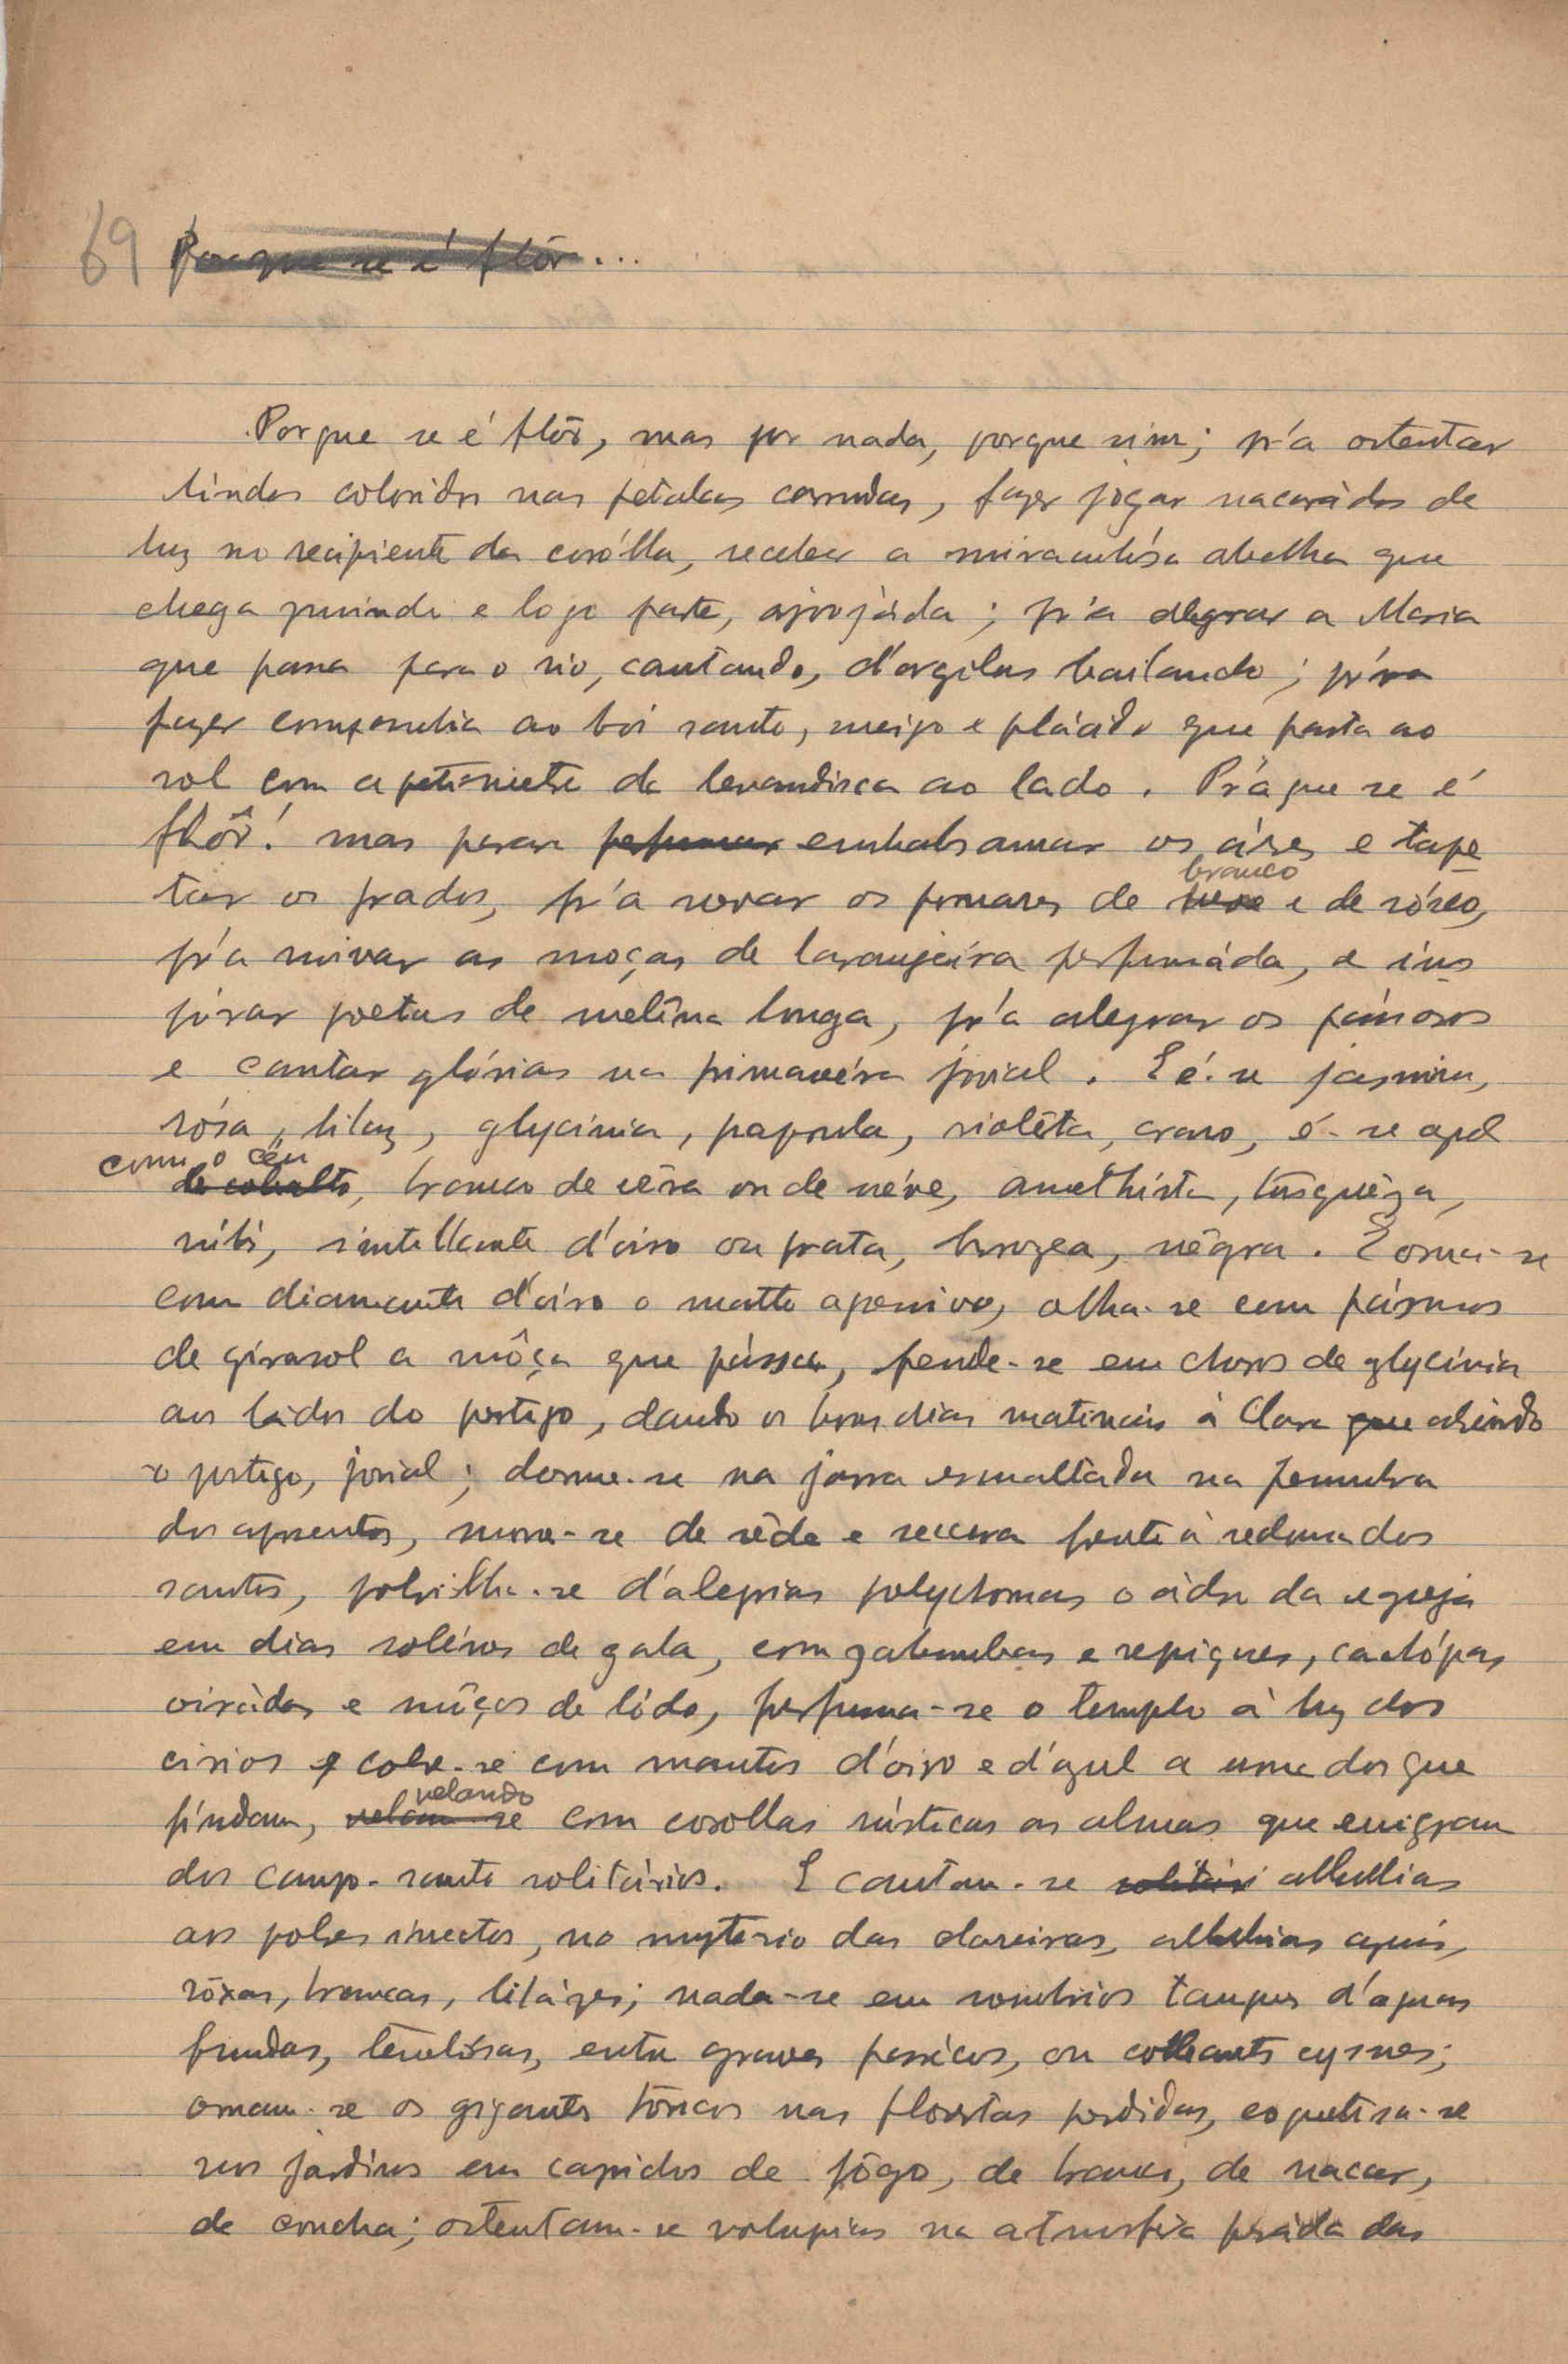 69 Porque se é flôr...
Porque se é flôr, mas por nada, porque sim; pr'a ostentar
lindos coloridos nas petalas carnudas, fazer jogar nacarádos de
luz no recipiente da corólla, receber a miraculósa abelha que
chega zumindo e logo parte, ajoujáda; pr'a alegrar a Maria
que passa para o rio, cantando, d'argolas bailando; pr'a
fazer companhia ao boi santo, meigo e plácido que pasta ao
sol com a da levandisca ao lado. Prá que se é
flôr! mas para perfumar embalsamar os áres e tape
branco
tar os prados, pr'a nevar os pomares de neve e de róseo,
pr'a noivar as moças de laranjeira perfumáda, e ins
pirar poetas de melêna longa, pr'a alegrar os
e cantar glórias na primavéra jovial. E é-se jasmim,
rósa, lilaz, glycinia, papoula, violêta, cravo, é-se azul
como o céu
de cobalto, branco de cêra ou de néve, amethista, turquêza,
rúbi, sintellante d'oiro ou prata, bronzea, nêgra. E orna-se
com diamante d'oiro o matto agressivo, olha-se com pásmos
de girasol a môça que pássa, pende-se em choros de glycinia
aos lados do postigo, dando os bons dias matinais á Clara que abrindo
o postigo, jovial; dorme-se na jarra esmaltada na penumbra
dos aposentos, morre-se de sêde e secura frente á redoma dos
santos, polvilha-se d'alegrias polychomas o ádro da egreja
em dias solénes de gala, com zabumbas e repiques, cachópas
oirádas e môços de lódo, perfuma-se o templo á luz dos
cirios e cobre-se com mantos d'oiro e d'azul a urna dos que
velando
findam, velam-se com corollas rústicas as almas que emigram
dos campo-santo solitários. E cantam-se solitári allelluias
aos pobres insectos, no mysterio das clareiras, allelluias azuis,
rôxas, brancas, lilázes; nada-se em sombrios tanques d'aguas
fundas, tenebrósas, entre graves cysnes;
ornam-se os gigantes tôrvos nas florestas perdidas, espreita-se
nos jardins em caprichos de fôgo, de branco, de nacar,
de concha; ostentam-se volupias na atmosfera das